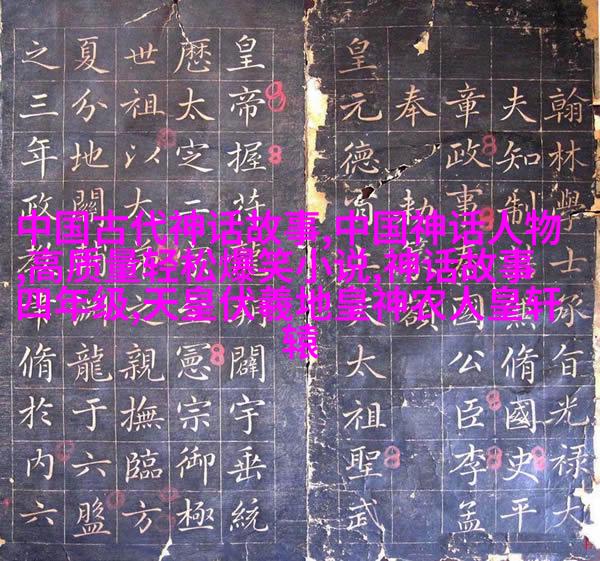 中国古代神话故事,中国神话人物
,高质量轻松爆笑小说,神话故事
四年级,天皇伏羲地皇神农人皇轩
辕
翰林學士承旨光祿大
夫知制脩國史平
章政事國公臣李孟
奉勅
皇元德太祖聖武
皇帝握符闢宇垂統
曆太定憲宗御極
世祖以大親撫臨方
夏分地龍于六盤
之三年政脩於内六